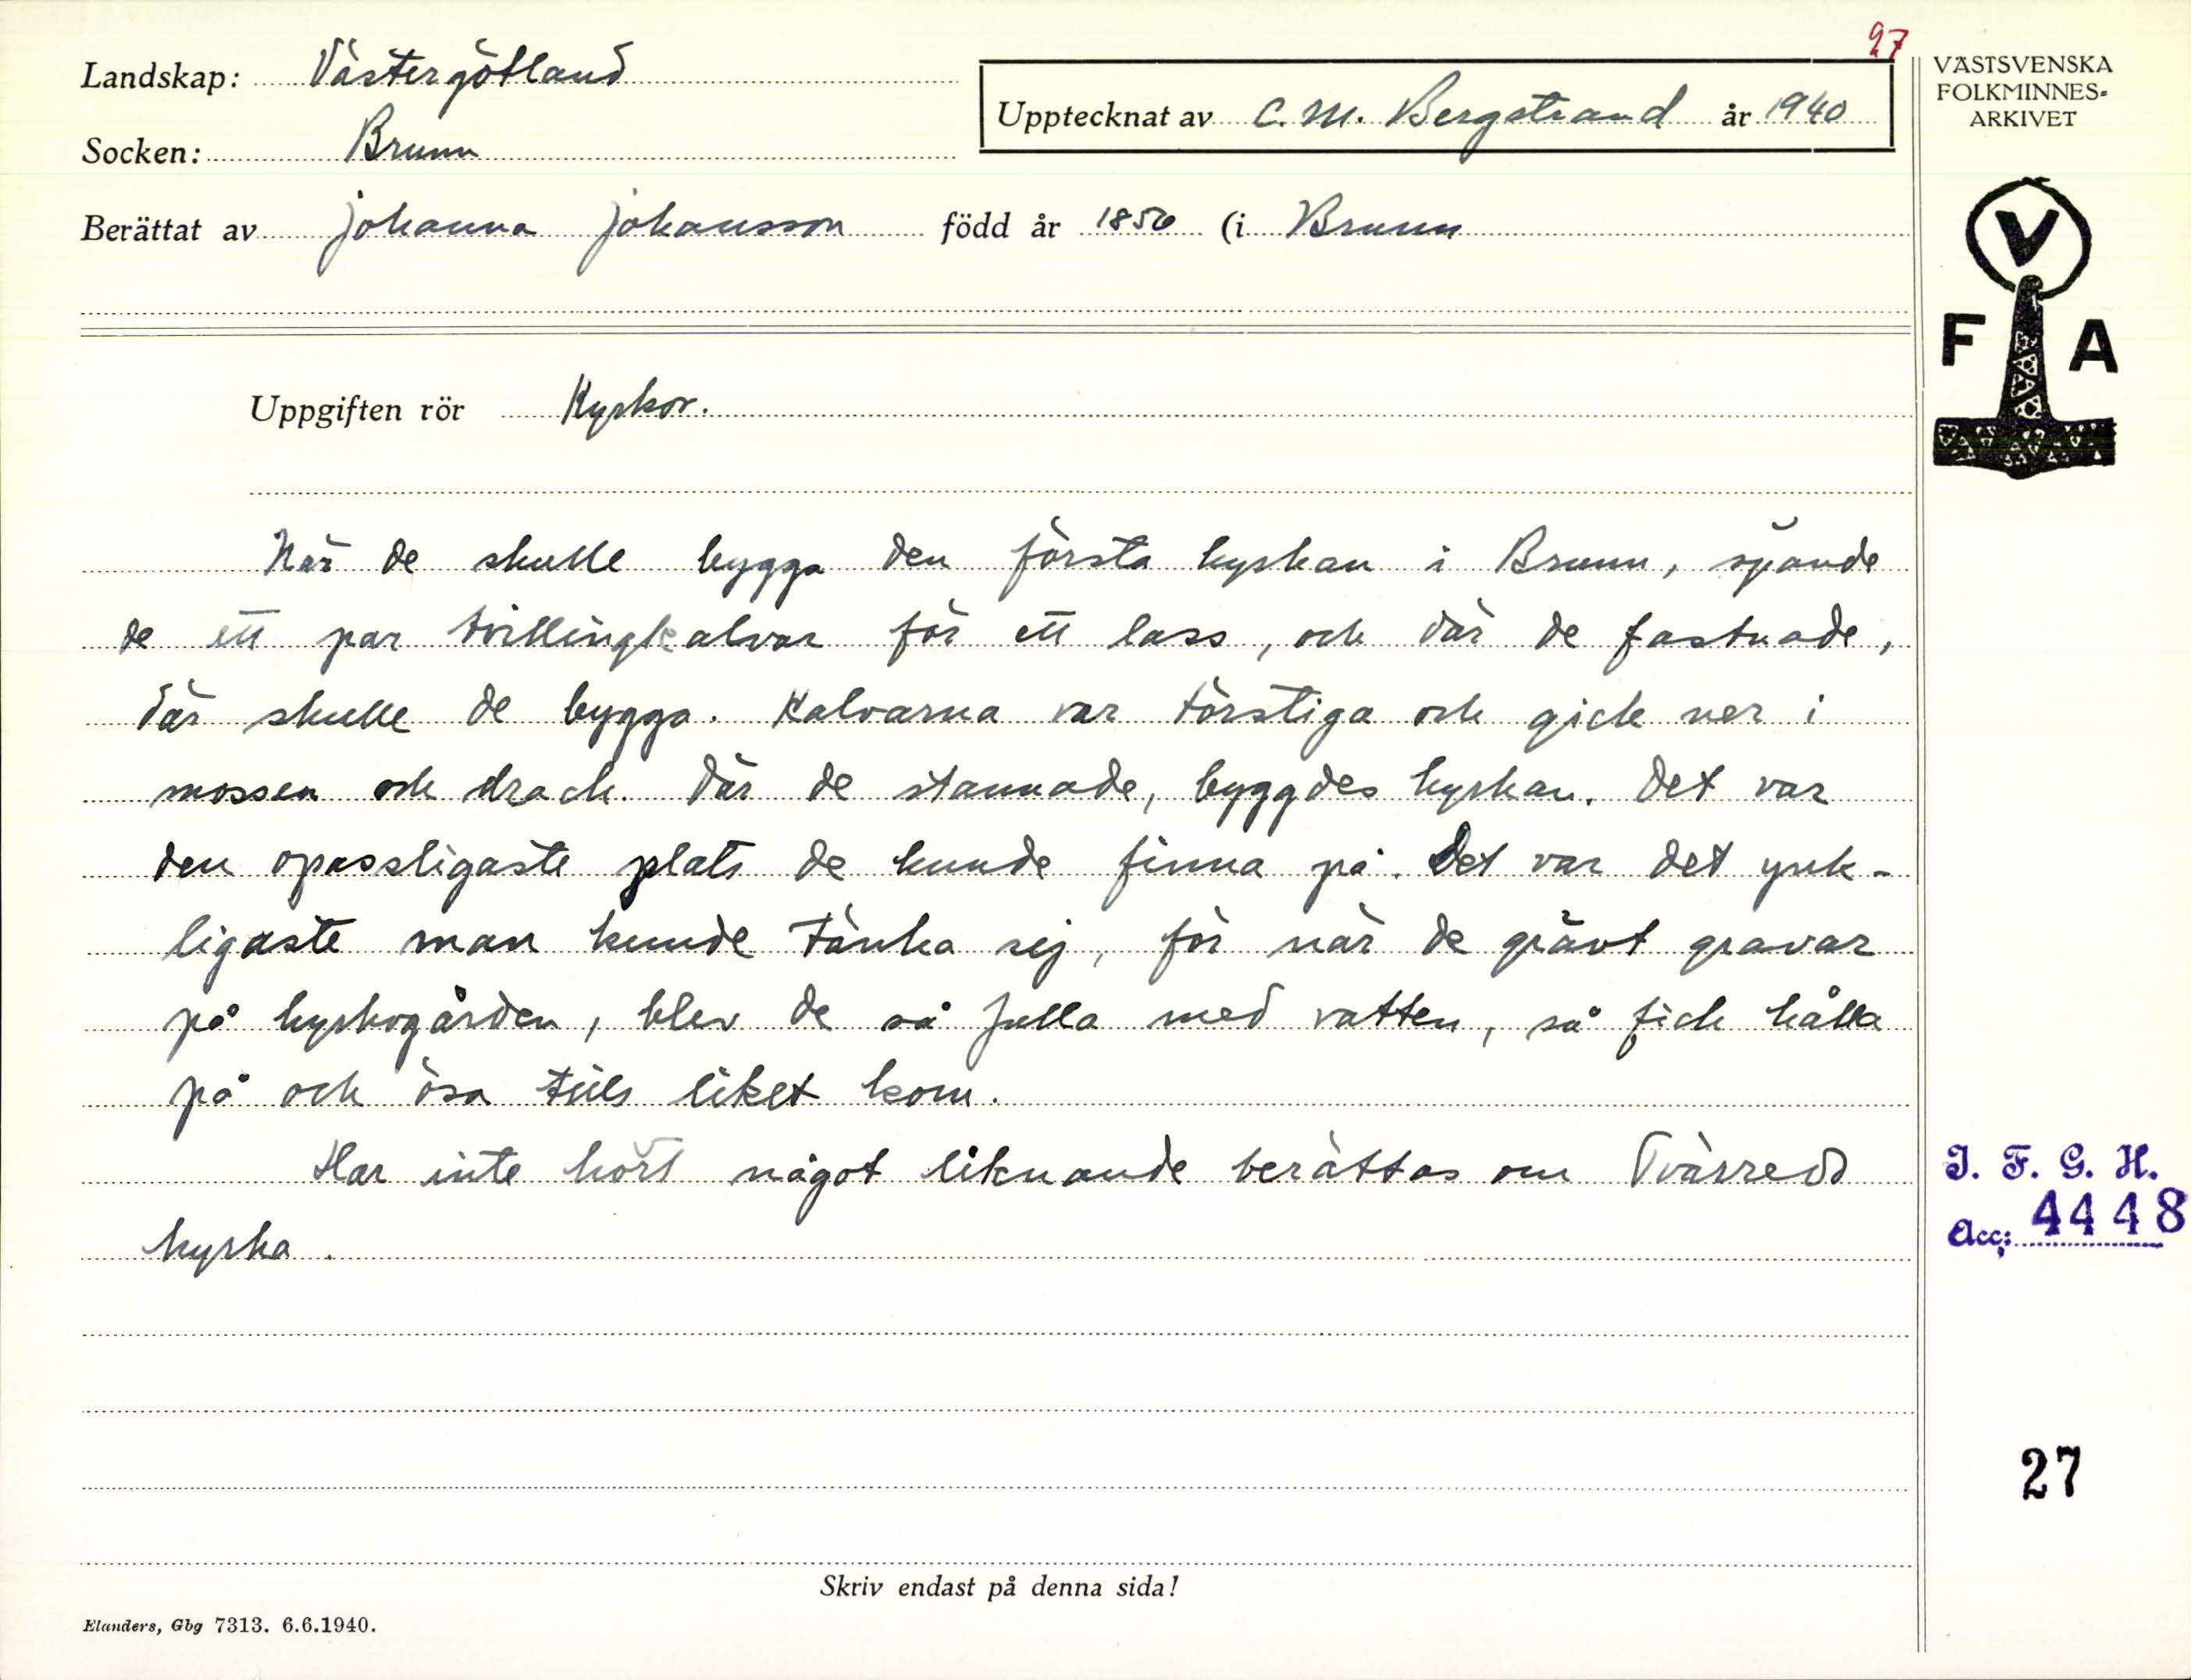 27
Landskap: Västergötland
Upptecknat av C. M. Bergstrand år 1940
VÄSTSVENSKA
FOLKMINNES-
ARKIVET
Socken: Brunn
Berättat av Johanna Johansson född år 1856 (i Brunn
V
F A
Uppgiften rör Kyrkor.
När de skulle bygga den första kyrkan i Brunn, spände
de ett par tvillingkalvar för ett lass, och där de fastnade,
där skulle de bygga. Kalvarna var törstiga och gick ner i
mossen och drack. Där de stannade, byggdes kyrkan. Det var
den opassligaste plats de kunde finna på. Det var det ynk-
ligaste man kunde tänka sej, för när de grävt gravar
på kyrkogården, blev de så fulla med vatten, så fick hålla
på och ösa tills liket kom.
Har inte hört något liknande berättas om Tvärred
kyrka.
I. F. G. H.
Acc: 4448
27
Skriv endast på denna sida!
Elanders, Gbg 7313. 6.6.1940.